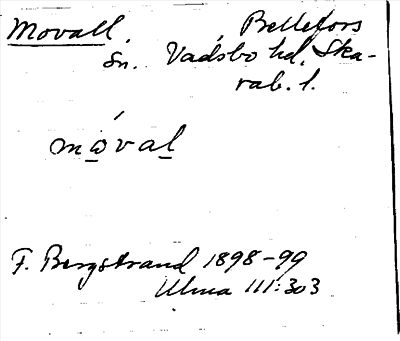 Movall. Bellefors
Sn. Vadsbo hd, Ska-
rab. l.
mó̲val̲
F. Bergstrand 1898-99
Ulma 111:303